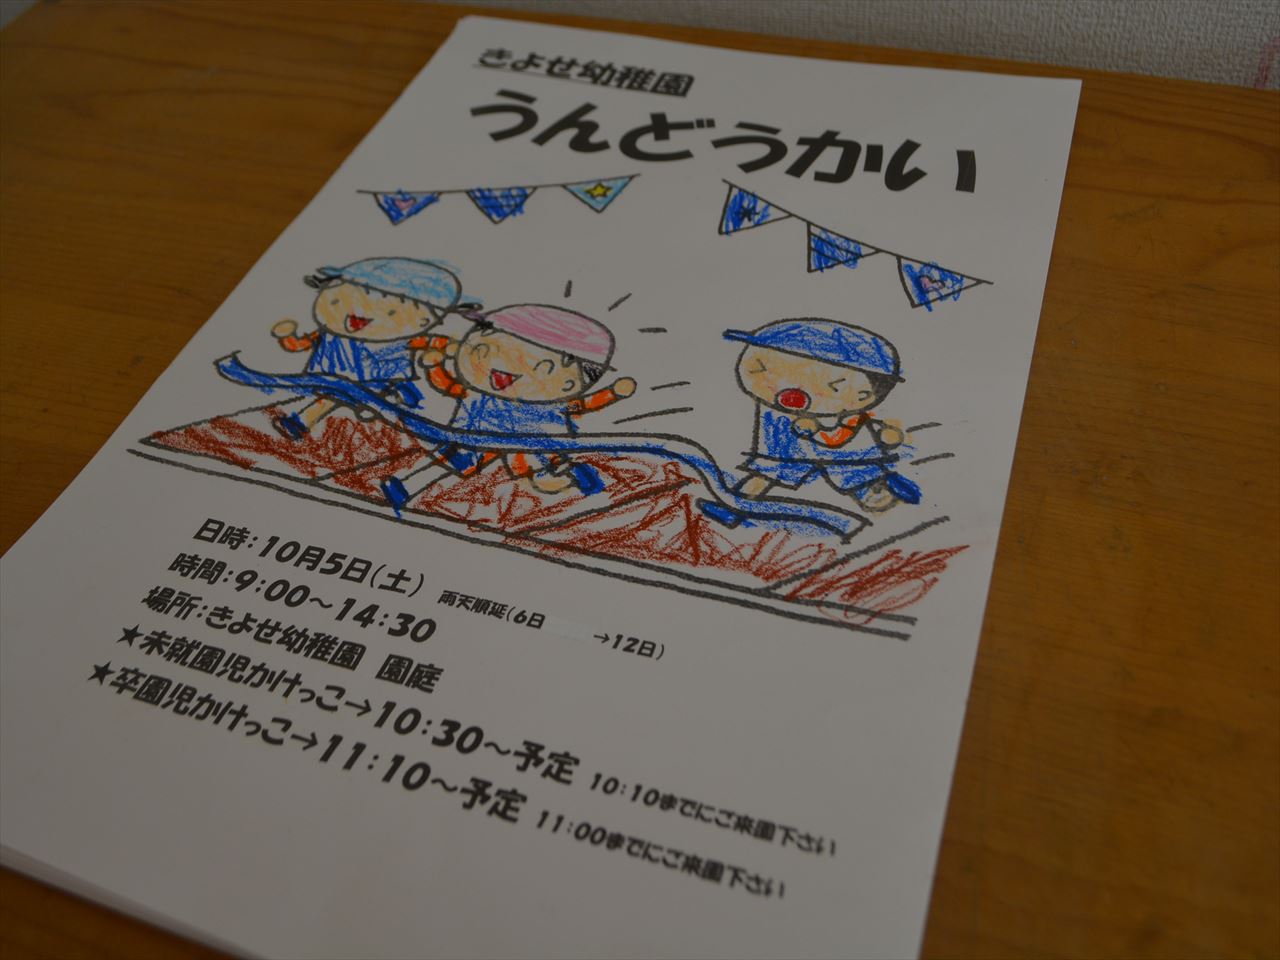 きよせ幼稚園
うんどうかい
日時：10月5日（土） 雨天順延（6日 →12日）
時間：9：00～14：30
場所：きよせ幼稚園 園庭
★未就園児かけっこ→10：30～予定 10：10までにご来園下さい
★卒園児かけっこ→11：10～予定 11：00までにご来園下さい